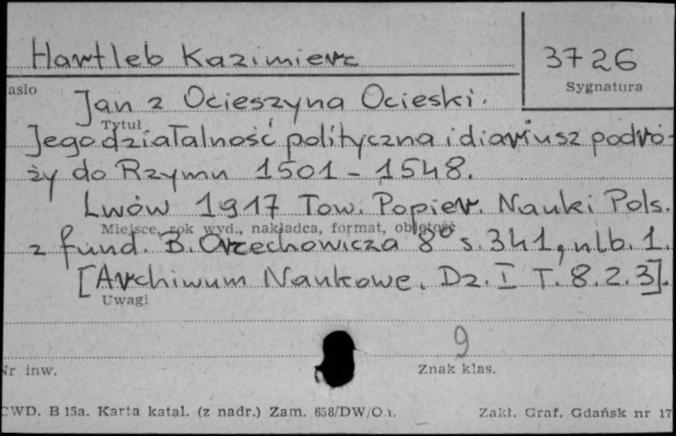 Hartleb Kazimierz
3726
asło
Sygnatura
Jan z Ocieszyna Ocieski.
Tytuł
Jego działalność polityczna i diariusz podró-
ży do Rzymu 1501 - 1548.
Lwów 1917 Tow. Popier. Nauki Pols.
Miejsce, rok wyd., nakładca, format, objętość
z fund. B. Orzechowicza 8° s. 341, nlb. 1.
[Archiwum Naukowe. Dz. I T. 8. z. 3].
Uwagi
9
Nr inw.
Znak klas.
CWD. B 15a. Karta katal. (z nadr.) Zam. 658/DW/O.
Zakł. Graf. Gdańsk nr 17